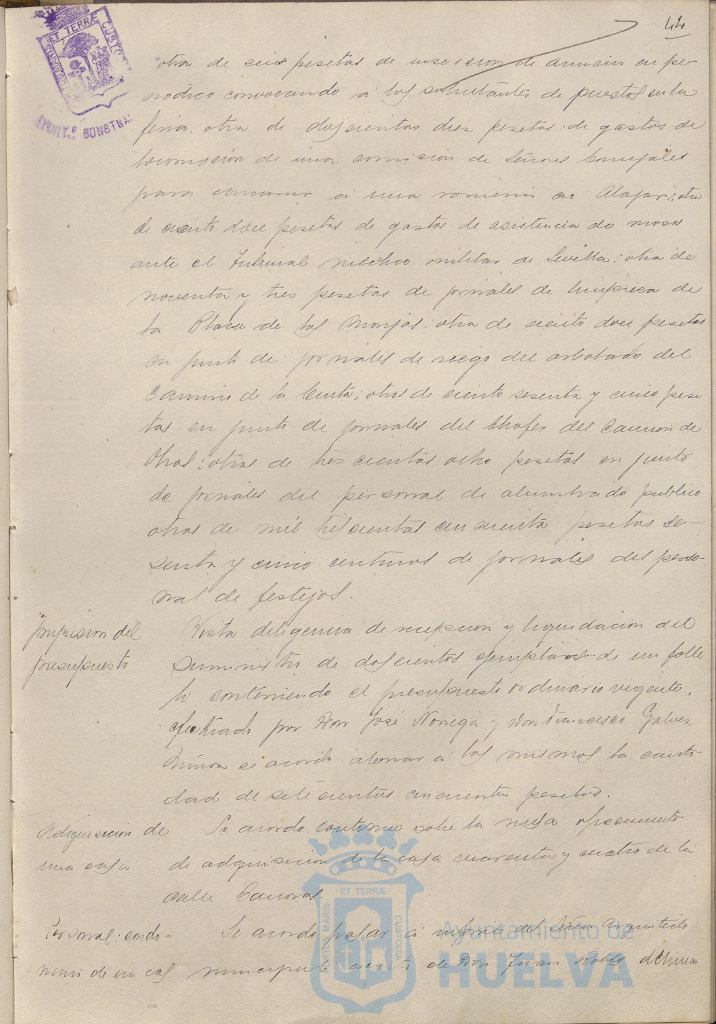 44
ET TERRÆ CUSTO
AYUNTº CONSTNAL
otra de cien pesetas de inserccion de anuncio en pe-
riodico convocando a los solicitantes de puestos en la
feria; otra de doscientas diez pesetas de gastos de
locomoción de una comision de Señores Concejales
para concurrir a una romeria en Alajar; otra
de ciento doce pesetas de gastos de asistencia de mozos
ante el Tribunal medico militar de Sevilla; otra de
noventa y tres pesetas de jornales de limpieza de
la Plaza de las Monjas; otra de ciento doce pesetas
en junto de jornales de riego del arbolado del
Camino de la Cinta; otras de ciento sesenta y cinco pese
tas en junto de jornales del Chofer del Camion de
Obras; otras de trescientas ocho pesetas en junto
de jornales del personal de alumbrado publico
otras de mil trescientas cincuenta pesetas se-
senta y cinco centimos de jornales del perso-
nal de festejos.
Impresion del presupuesto
Vista diligencia de recepcion y liquidacion del
suministro de doscientos ejemplares de un folle
to conteniendo el presupuesto ordinario vigente,
efectuado por Don José Noriega y Don Francisco Galvez
se acordo abonar a los mismos la canti
dad de setecientas cincuenta pesetas.
Adquisicion de una casa
Se acordo continue sobre la mesa
de adquisicion de la casa cuarenta y cuatro de la
calle
Se acordo pasar a informe del Señor Arquitecto
municipal de Don Juan
ET TERRÆ
CUSTODIA
MARIS
Ayuntamiento de
HUELVA